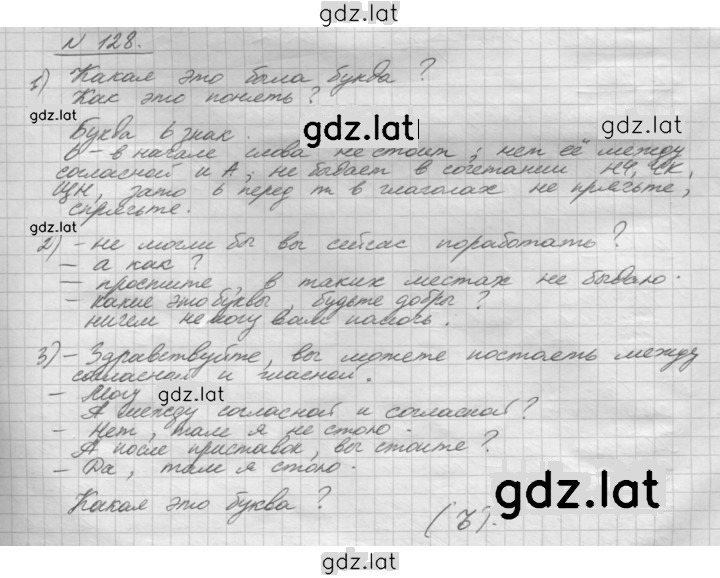 gdz.lat
N 128.
1) Какая это была буква ?
Как это понять ?
gdz.lat
Буква ь знак.
gdz.lat
ь – в начале слова не стоит ; нет её между
согласной и А ; не бывает в сочетании НЧ, ЧК,
ЩН, зато ь перед т в глаголах не прячьте,
спрячьте.
gdz.lat
2) – не могли бы вы сейчас поработать ?
– а как ?
– простите, в таких местах не бываю.
– какие это буквы, будьте добры ?
ничем не могу вам помочь.
3) – Здравствуйте, вы можете постоять между
согласной и гласной.
– Могу
gdz.lat
А между согласной и согласной ?
– Нет, там я не стою.
А после приставок, вы стоите ?
– Да, там я стою.
gdz.lat
Какая это буква ?
(Ъ).
gdz.lat